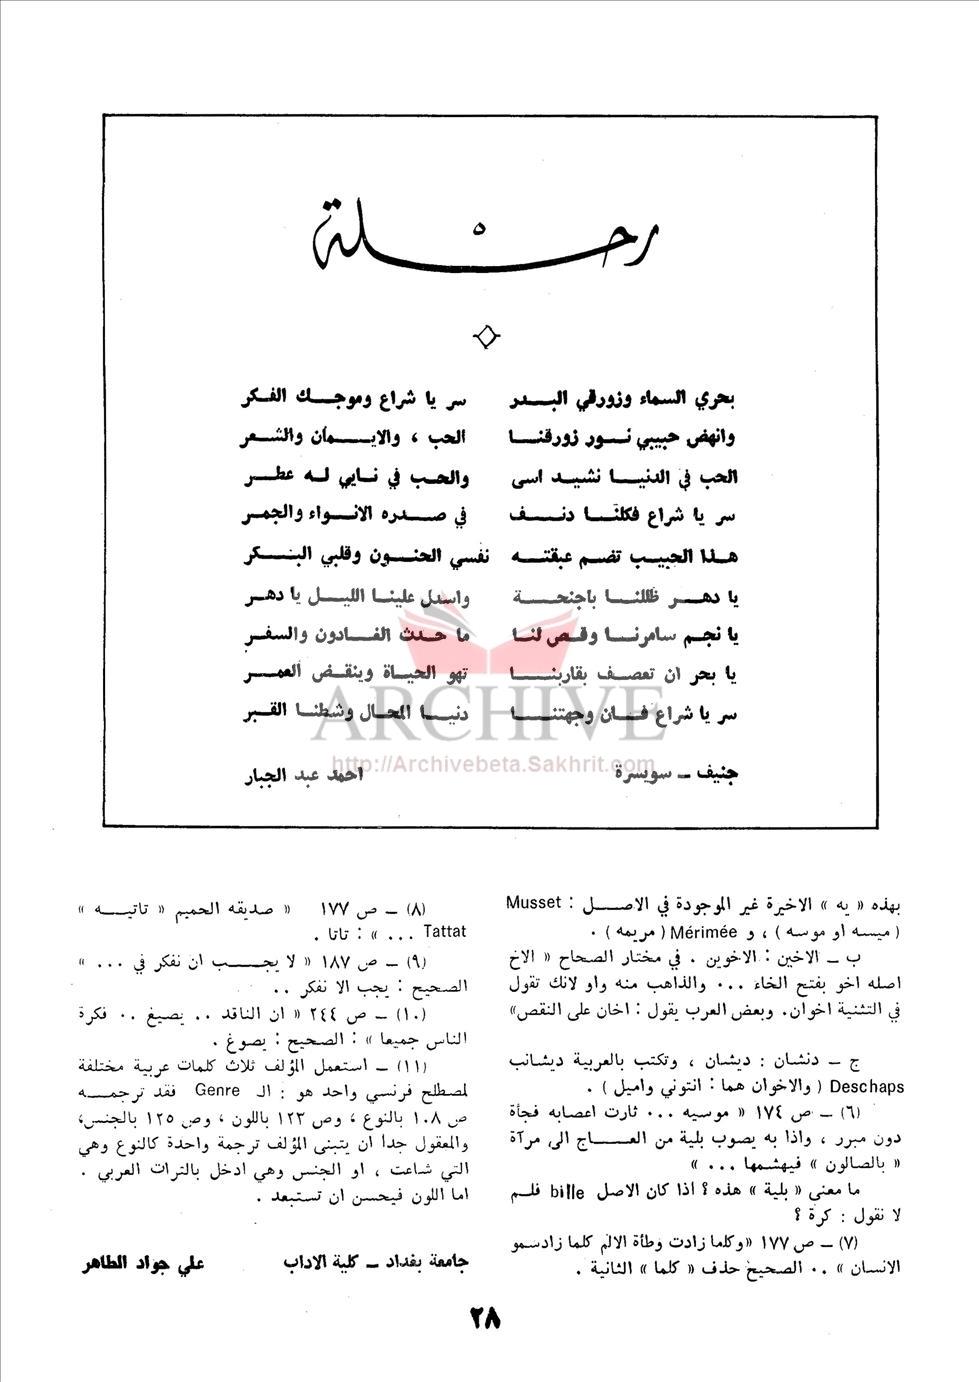 رحلة
بحري السماء وزورقي البـــدر سر يا شراع وموجــك الفكر
وانهض حبيبي نــور زورقنــا الحب ، والايــمان والشعر
الحب في الدنيــا نشيــد اسى والحــب في نــايي لــه عطــر
سر يا شراع فكلنــا دنــف في صــدره الانــواء والجمــر
هــذا الحبيــب تضــم عبقتــه نفسي الحنــون وقلبي البــكر
يا دهــر ظللنــا باجنحــة واسدل علينــا الليــل يا دهر
يا نجــم سامرنــا وقــص لنــا ما حــدث الغــادون والسفر
يا بحر ان تعصــف بقاربنــا تهو الحيــاة وينقــض العمــر
سر يا شراع فــان وجهتنــا دنيــا المحــال وشطنــا القبر
جنيف ــ سويسرة احمد عبد الجبار
ARCHIVE
http://Archivebeta.Sakhrit.com
بهذه « يه » الاخيرة غير الموجودة في الاصـــل : Musset
( ميسه او موسه ) ، و Mérimée ( مريمه ) .
ب ــ الاخين : الاخوين . في مختار الصحاح « الاخ
اصله اخو بفتح الخاء ... والذاهب منه واو لانك تقول
في التثنية اخوان. وبعض العرب يقول : اخان على النقص»
ج ــ دنشان : ديشان ، وتكتب بالعربية ديشانب
Deschaps ( والاخوان هما : انتوني واميل ) .
(٦) ــ ص ١٧٤ « موسيه ... ثارت اعصابه فجأة
دون مبرر ، واذا به يصوب بلية من العـــاج الى مرآة
« بالصالون » فيهشمها ... »
ما معنى « بلية » هذه ؟ اذا كان الاصل bille فلــم
لا نقول : كرة ؟
(٧) ــ ص ١٧٧ «وكلما زادت وطأة الالم كلما زادسمو
الانسان » .. الصحيح حذف « كلما » الثانية .
(٨) ــ ص ١٧٧ « صديقه الحميم « تاتيــه »
Tattat ... » : تاتا .
(٩) ــ ص ١٨٧ « لا يجـــب ان نفكر في ... »
الصحيح : يجب الا نفكر ..
(١٠) ــ ص ٢٤٤ « ان الناقد .. يصيغ .. فكرة
الناس جميعا » : الصحيح : يصوغ .
(١١) ــ استعمل المؤلف ثلاث كلمات عربية مختلفة
لمصطلح فرنسي واحد هو : الـ Genre فقد ترجمـــه
ص ١٠٨ بالنوع ، وص ١٢٣ باللون ، وص ١٢٥ بالجنس،
والمعقول جدا ان يتبنى المؤلف ترجمة واحدة كالنوع وهي
التي شاعت ، او الجنس وهي ادخل بالتراث العربي .
اما اللون فيحسن ان تستبعد .
جامعة بغداد ــ كلية الاداب علي جواد الطاهر
٢٨